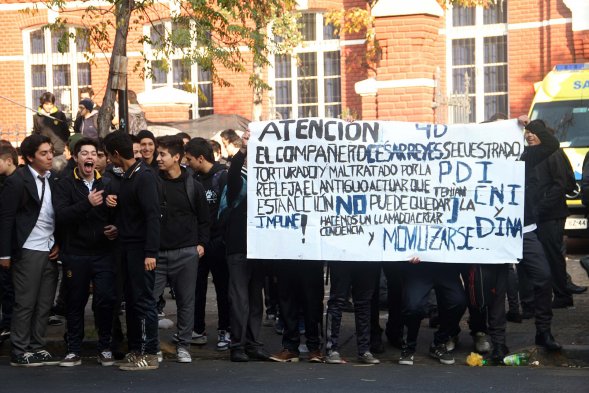 ATENCION 4D
EL COMPAÑERO CESAR REYES SECUESTRADO,
TORTURADO Y MALTRATADO POR LA PDI
REFLEJA EL ANTIGUO ACTUAR QUE TENIAN
ESTA ACCION NO PUEDE QUEDAR CNI Y
IMPUNE! HACEMOS UN LLAMADO A CREAR DINA
CONCIENCIA Y MOVILIZARSE...